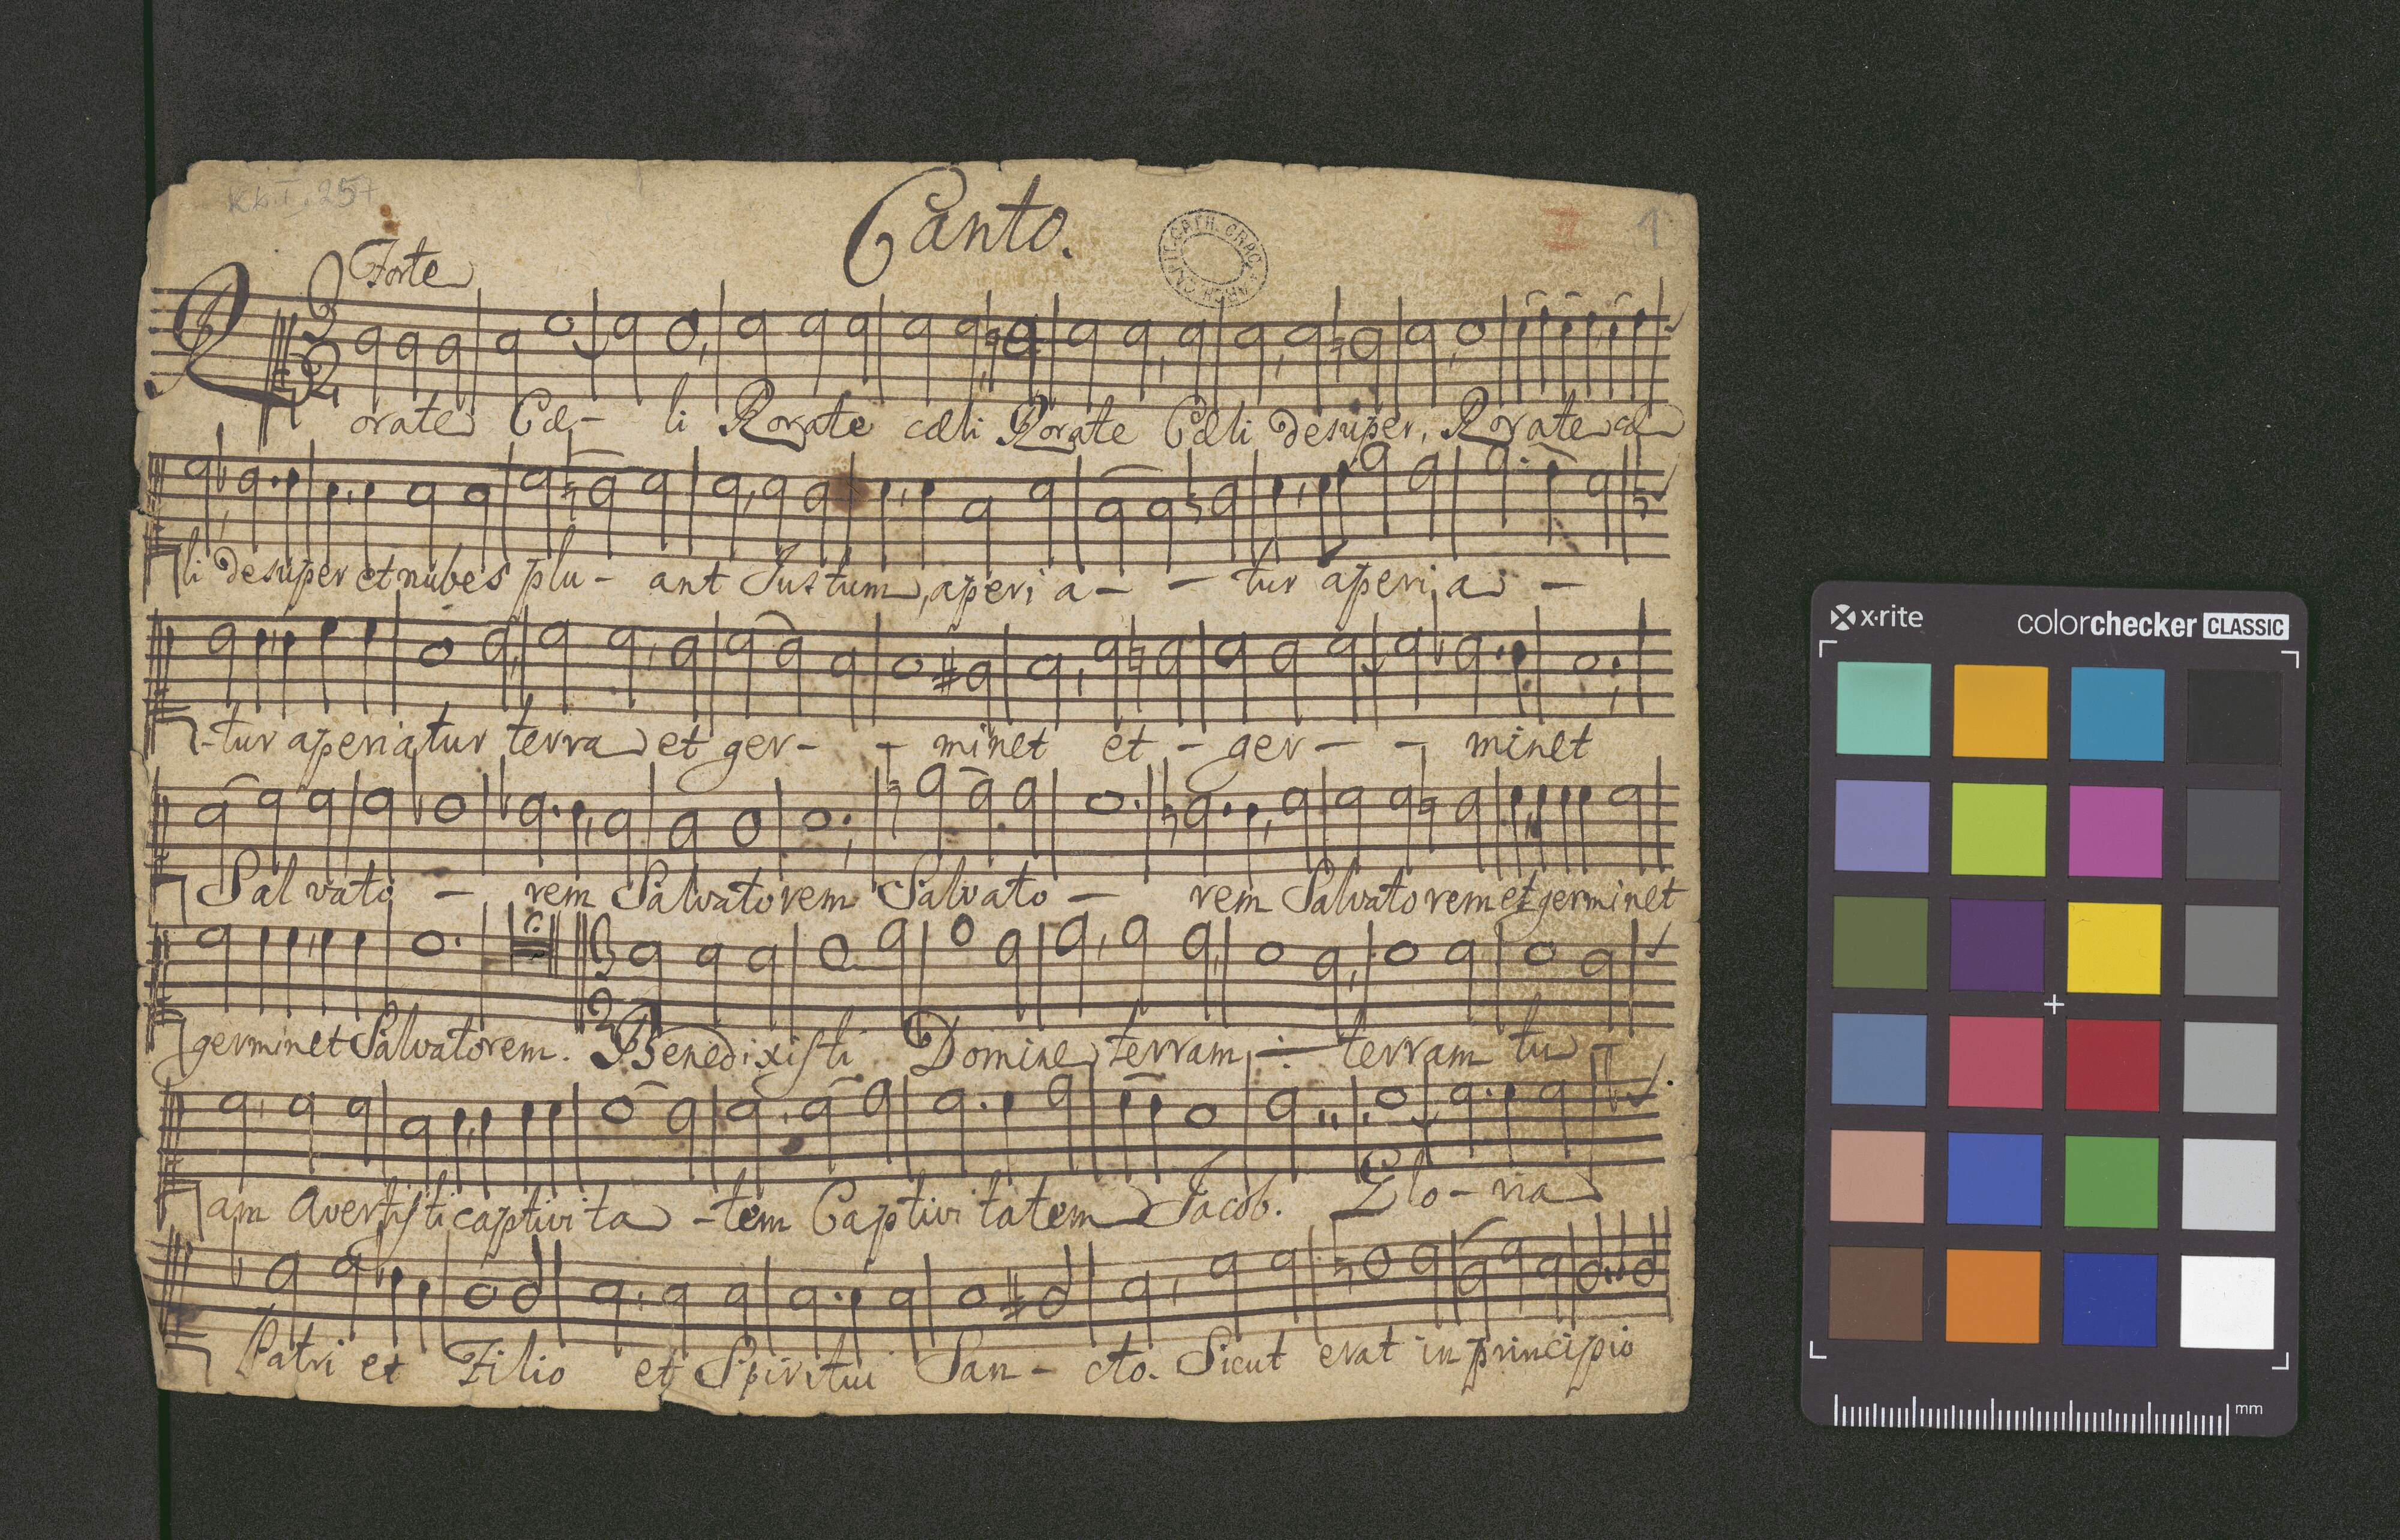 KK.I.257
Canto.
II 1
Forte
3 2
Rorate Cæ- li Rorate cæli Rorate Cæli desuper, Rorate cæ
li desuper et nubes plu- ant Justum, aperi a- - tur aperi a -
-tur aperiatur terra et ger- - minet et - ger- - minet
Salvato - rem Salvatorem Salvato - rem Salvatorem et germinet
germinet Salvatorem. Benedixisti Domine terram, ÷ terram tu -
am Avertisti captivita -tem Captivitatem Jacob. Glo- ria
Patri et Filio et Spiritui San- cto. Sicut erat in principio
x·rite
colorchecker CLASSIC
mm